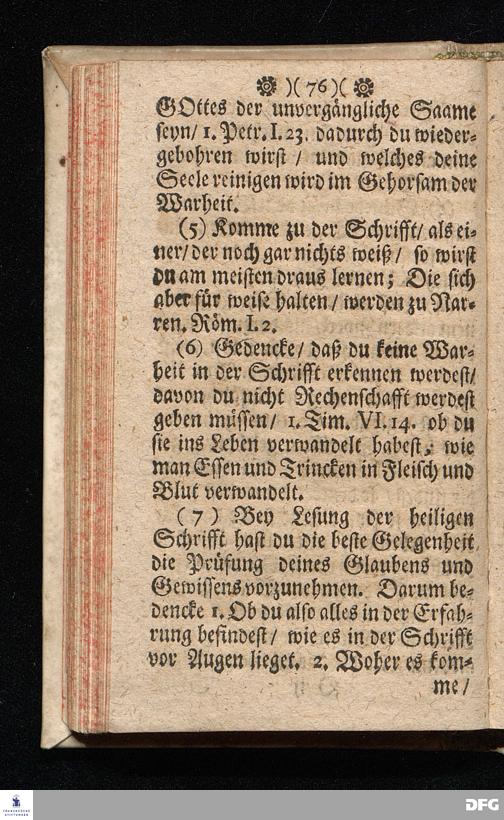 )( 76 )(
GOttes der unvergängliche Saame
seyn/ 1. Petr. I. 23. dadurch du wieder-
gebohren wirst / und welches deine
Seele reinigen wird im Gehorsam der
Warheit.
(5) Komme zu der Schrifft/ als ei-
ner/ der noch gar nichts weiß/ so wirst
du am meisten draus lernen; Die sich
aber für weise halten/ werden zu Nar-
ren. Röm. I. 2.
(6) Gedencke/ daß du keine War-
heit in der Schrifft erkennen werdest/
davon du nicht Rechenschafft werdest
geben müssen/ 1. Tim. VI. 14. ob du
sie ins Leben verwandelt habest, wie
man Essen und Trincken in Fleisch und
Blut verwandelt.
(7) Bey Lesung der heiligen
Schrifft hast du die beste Gelegenheit
die Prüfung deines Glaubens und
Gewissens vorzunehmen. Darum be-
dencke 1. Ob du also alles in der Erfah-
rung befindest/ wie es in der Schrifft
vor Augen lieget. 2. Woher es kom-
me/
FRANCKESCHE
STIFTUNGEN
DFG